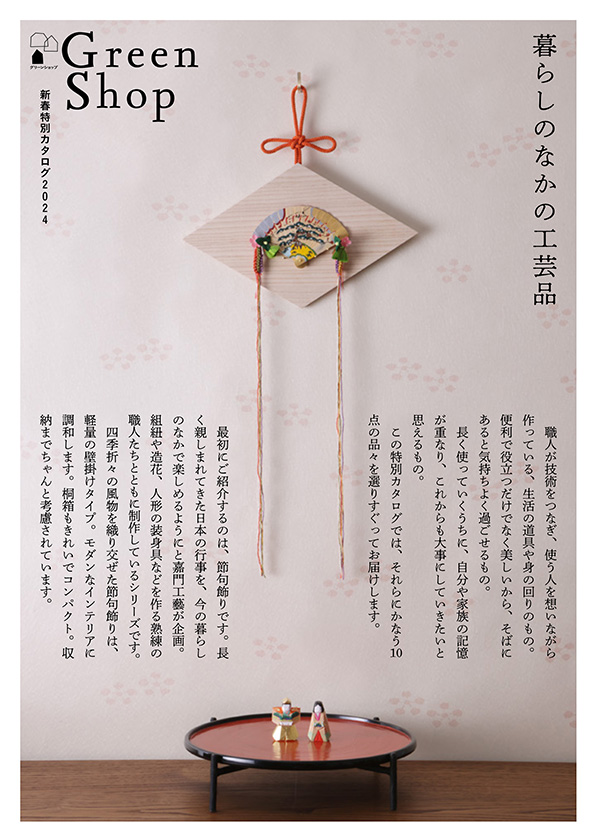 グリーンショップ
Green
Shop
新春特別カタログ2024
暮らしのなかの工芸品
職人が技術をつなぎ、使う人を想いながら
作っている、生活の道具や身の回りのもの。
便利で役立つだけでなく美しいから、そばに
あると気持ちよく過ごせるもの。
長く使っていくうちに、自分や家族の記憶
が重なり、これからも大事にしていきたいと
思えるもの。
この特別カタログでは、それらにかなう10
点の品々を選りすぐってお届けします。
最初にご紹介するのは、節句飾りです。長
く親しまれてきた日本の行事を、今の暮らし
のなかで楽しめるようにと嘉門工藝が企画。
組紐や造花、人形の装身具などを作る熟練の
職人たちとともに制作しているシリーズです。
四季折々の風物を織り交ぜた節句飾りは、
軽量の壁掛けタイプ。モダンなインテリアに
調和します。桐箱もきれいでコンパクト。収
納までちゃんと考慮されています。